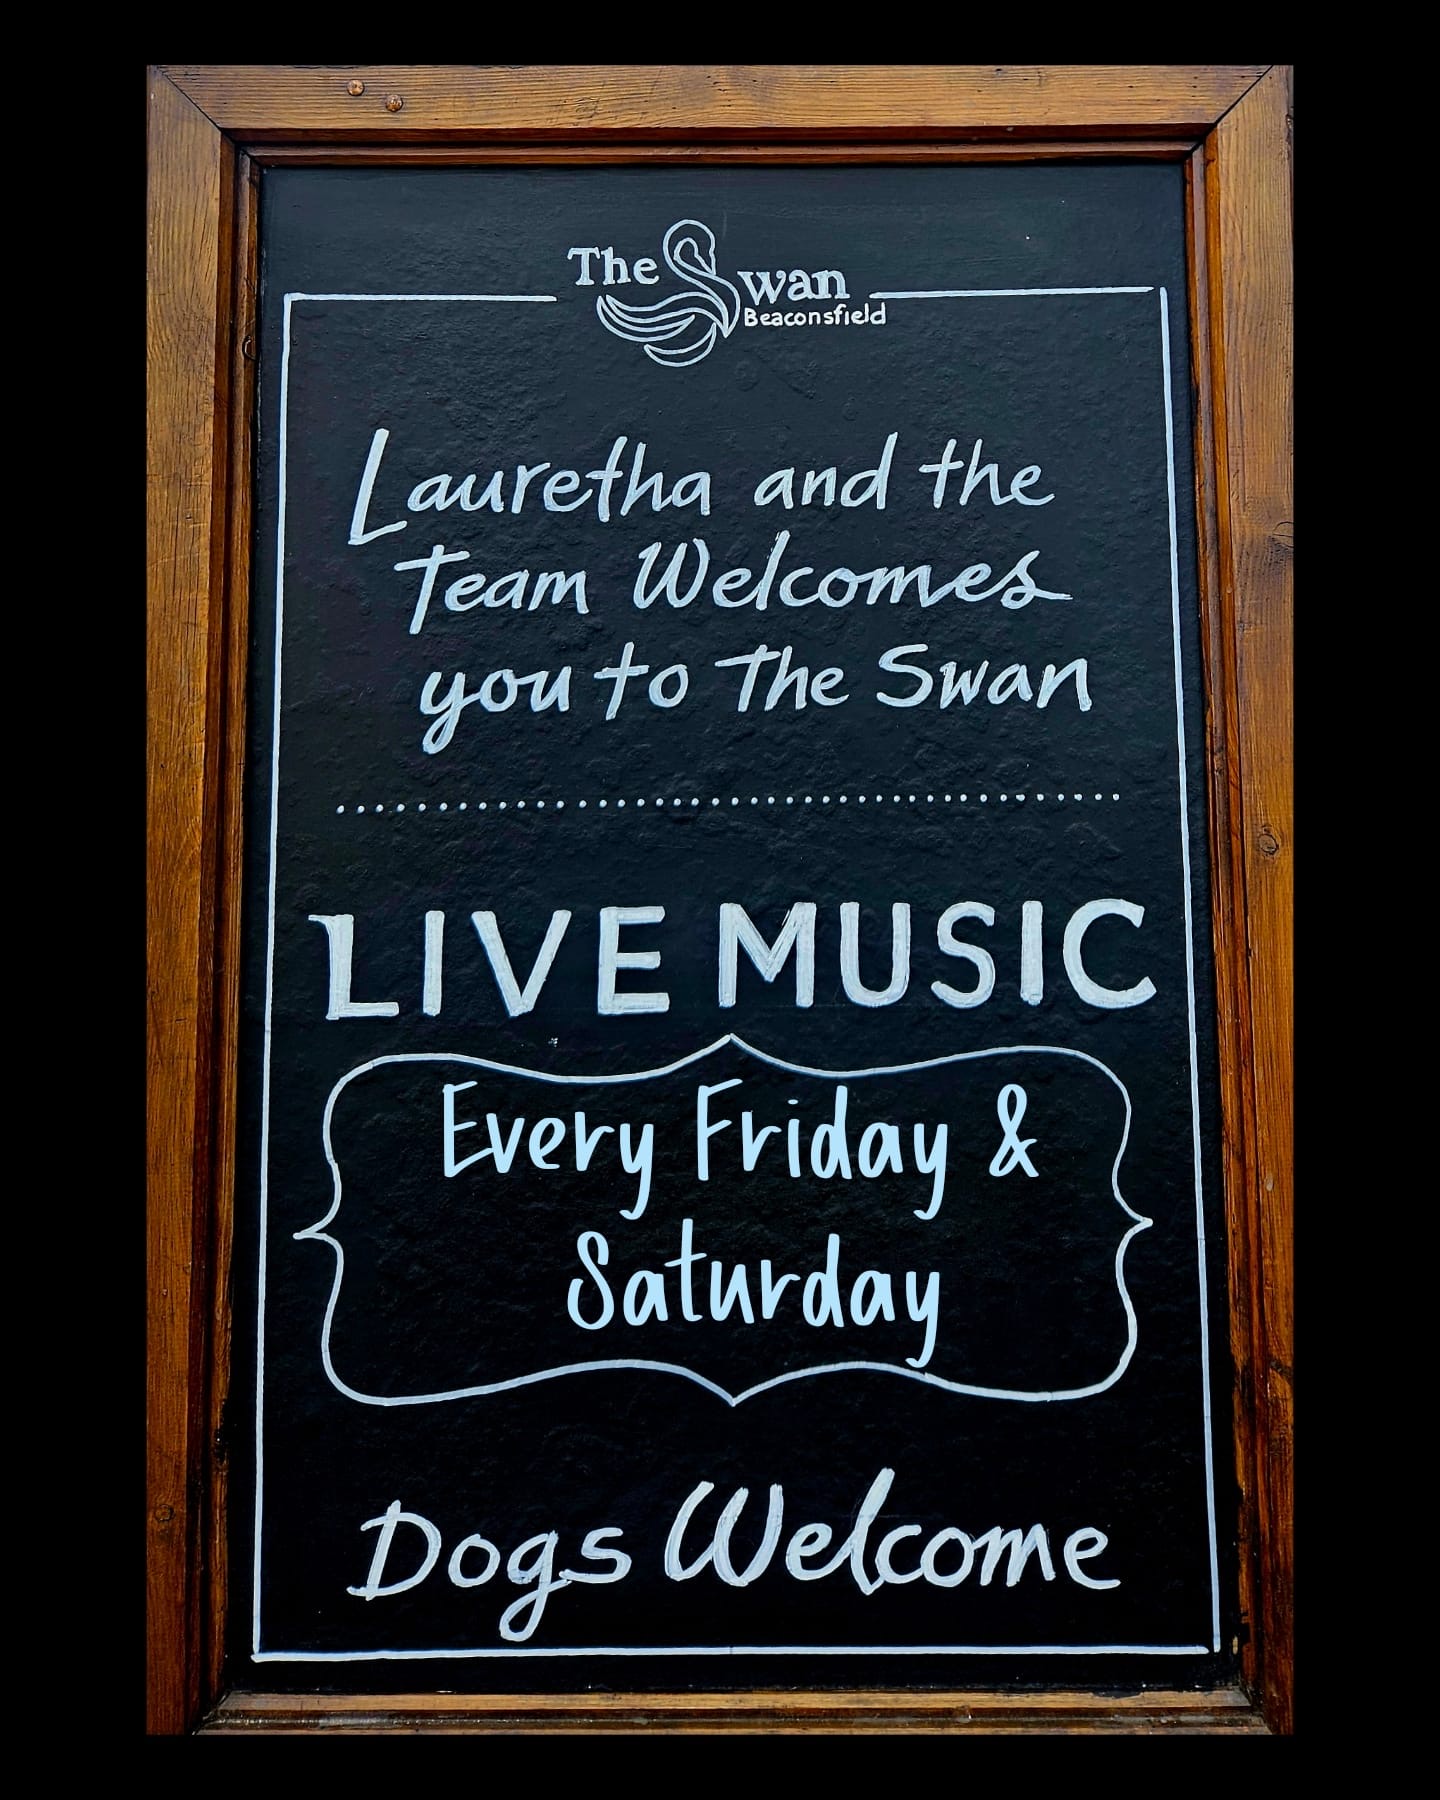 The Swan
Beaconsfield
Lauretha and the
Team Welcomes
you to The Swan
LIVE MUSIC
Every Friday &
Saturday
Dogs Welcome